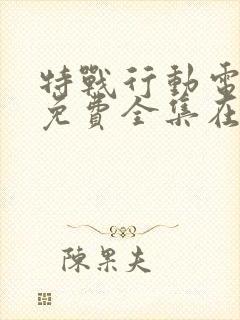 特戰行動電
免費全集在
陳果夫